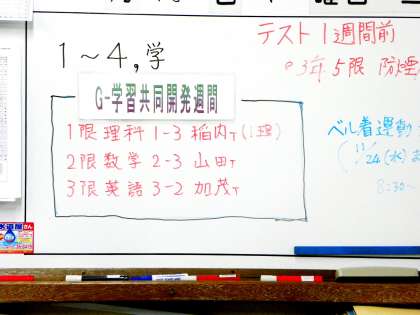 テスト1週間前
1～4,学
3年5限 防煙
G-学習共同開発週間
1限理科 1-3 稲内T(1理)
2限数学 2-3 山田T
3限英語 3-2 加茂T
ベル着運動
11/24(水)
8:30~